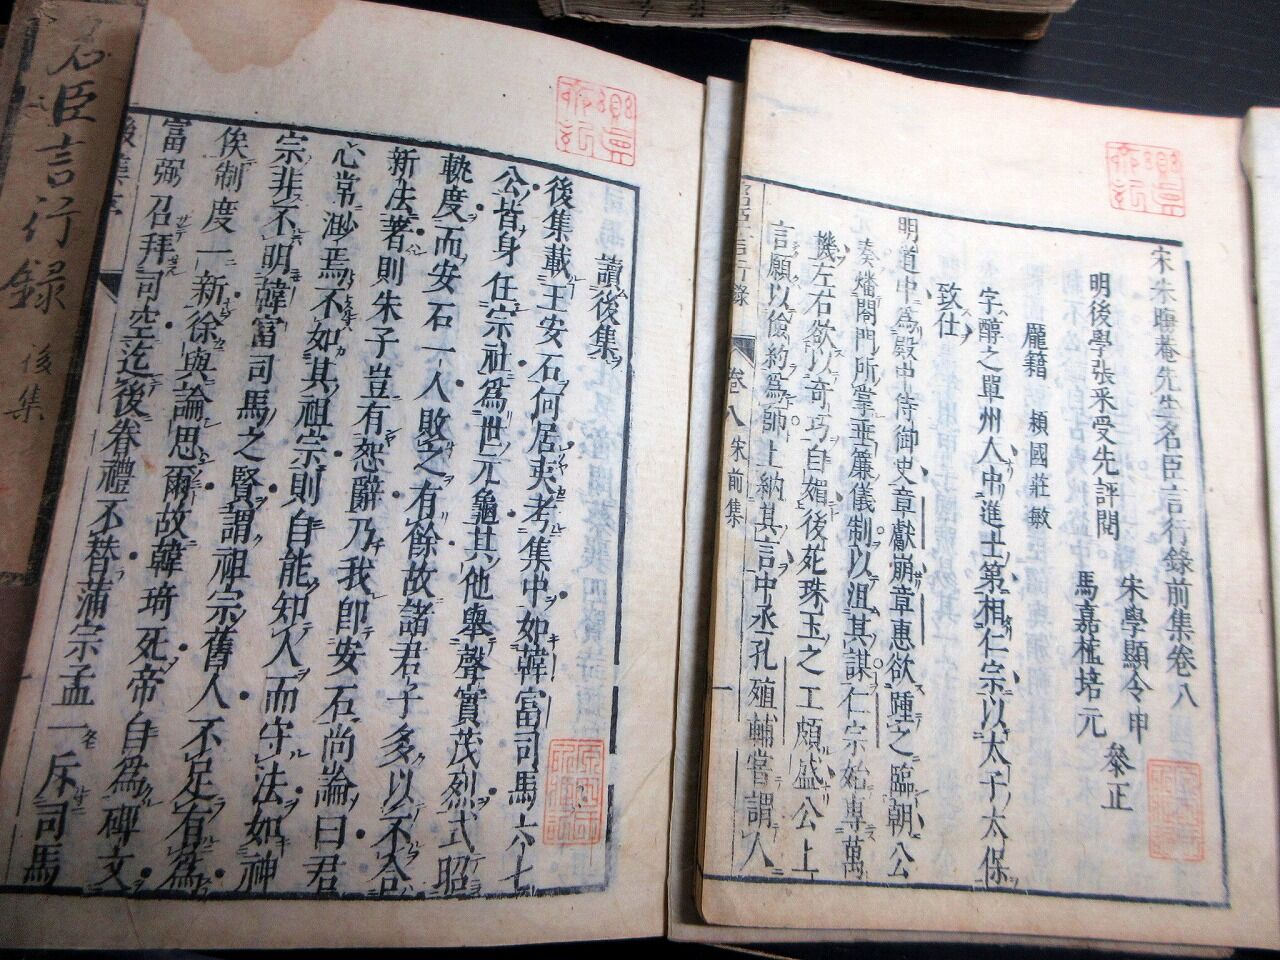 宋朱晦菴先生名臣言行錄前集卷八
朱學顯令申
明後學張采受先評閱
馬嘉植培元
參正
龐籍 潁國莊敏
字醇之單州人中進士第相仁宗以太子太保
致仕
明道中為殿中侍御史章獻崩章惠欲踵之臨朝公
奏燔閤門所掌垂簾儀制以沮其謀仁宗始專萬
機左右欲以奇巧自媚後苑珠玉之工頗盛公上
言願以儉約為師上納其言中丞孔殖輔嘗謂人
卷八
宋前集
一
讀後集
後集載王安石何居夷考集中如韓富司馬六七
公皆身任宗社為世元龜其他舉聲實茂烈式昭
軌度而安石一人敗之有餘故諸君子多以不合
新法著則朱子豈有恕辭乃我即安石尚論曰君
心常渺焉不如其祖宗則自能知人而守法如神
宗非不明韓富司馬之賢謂祖宗舊人不足有為
俟制度一新徐與論思爾故韓琦死帝自為碑文
富弼召拜司空迄後眷禮不替蒲宗孟一斥司馬
後集序
名臣言行録
後集